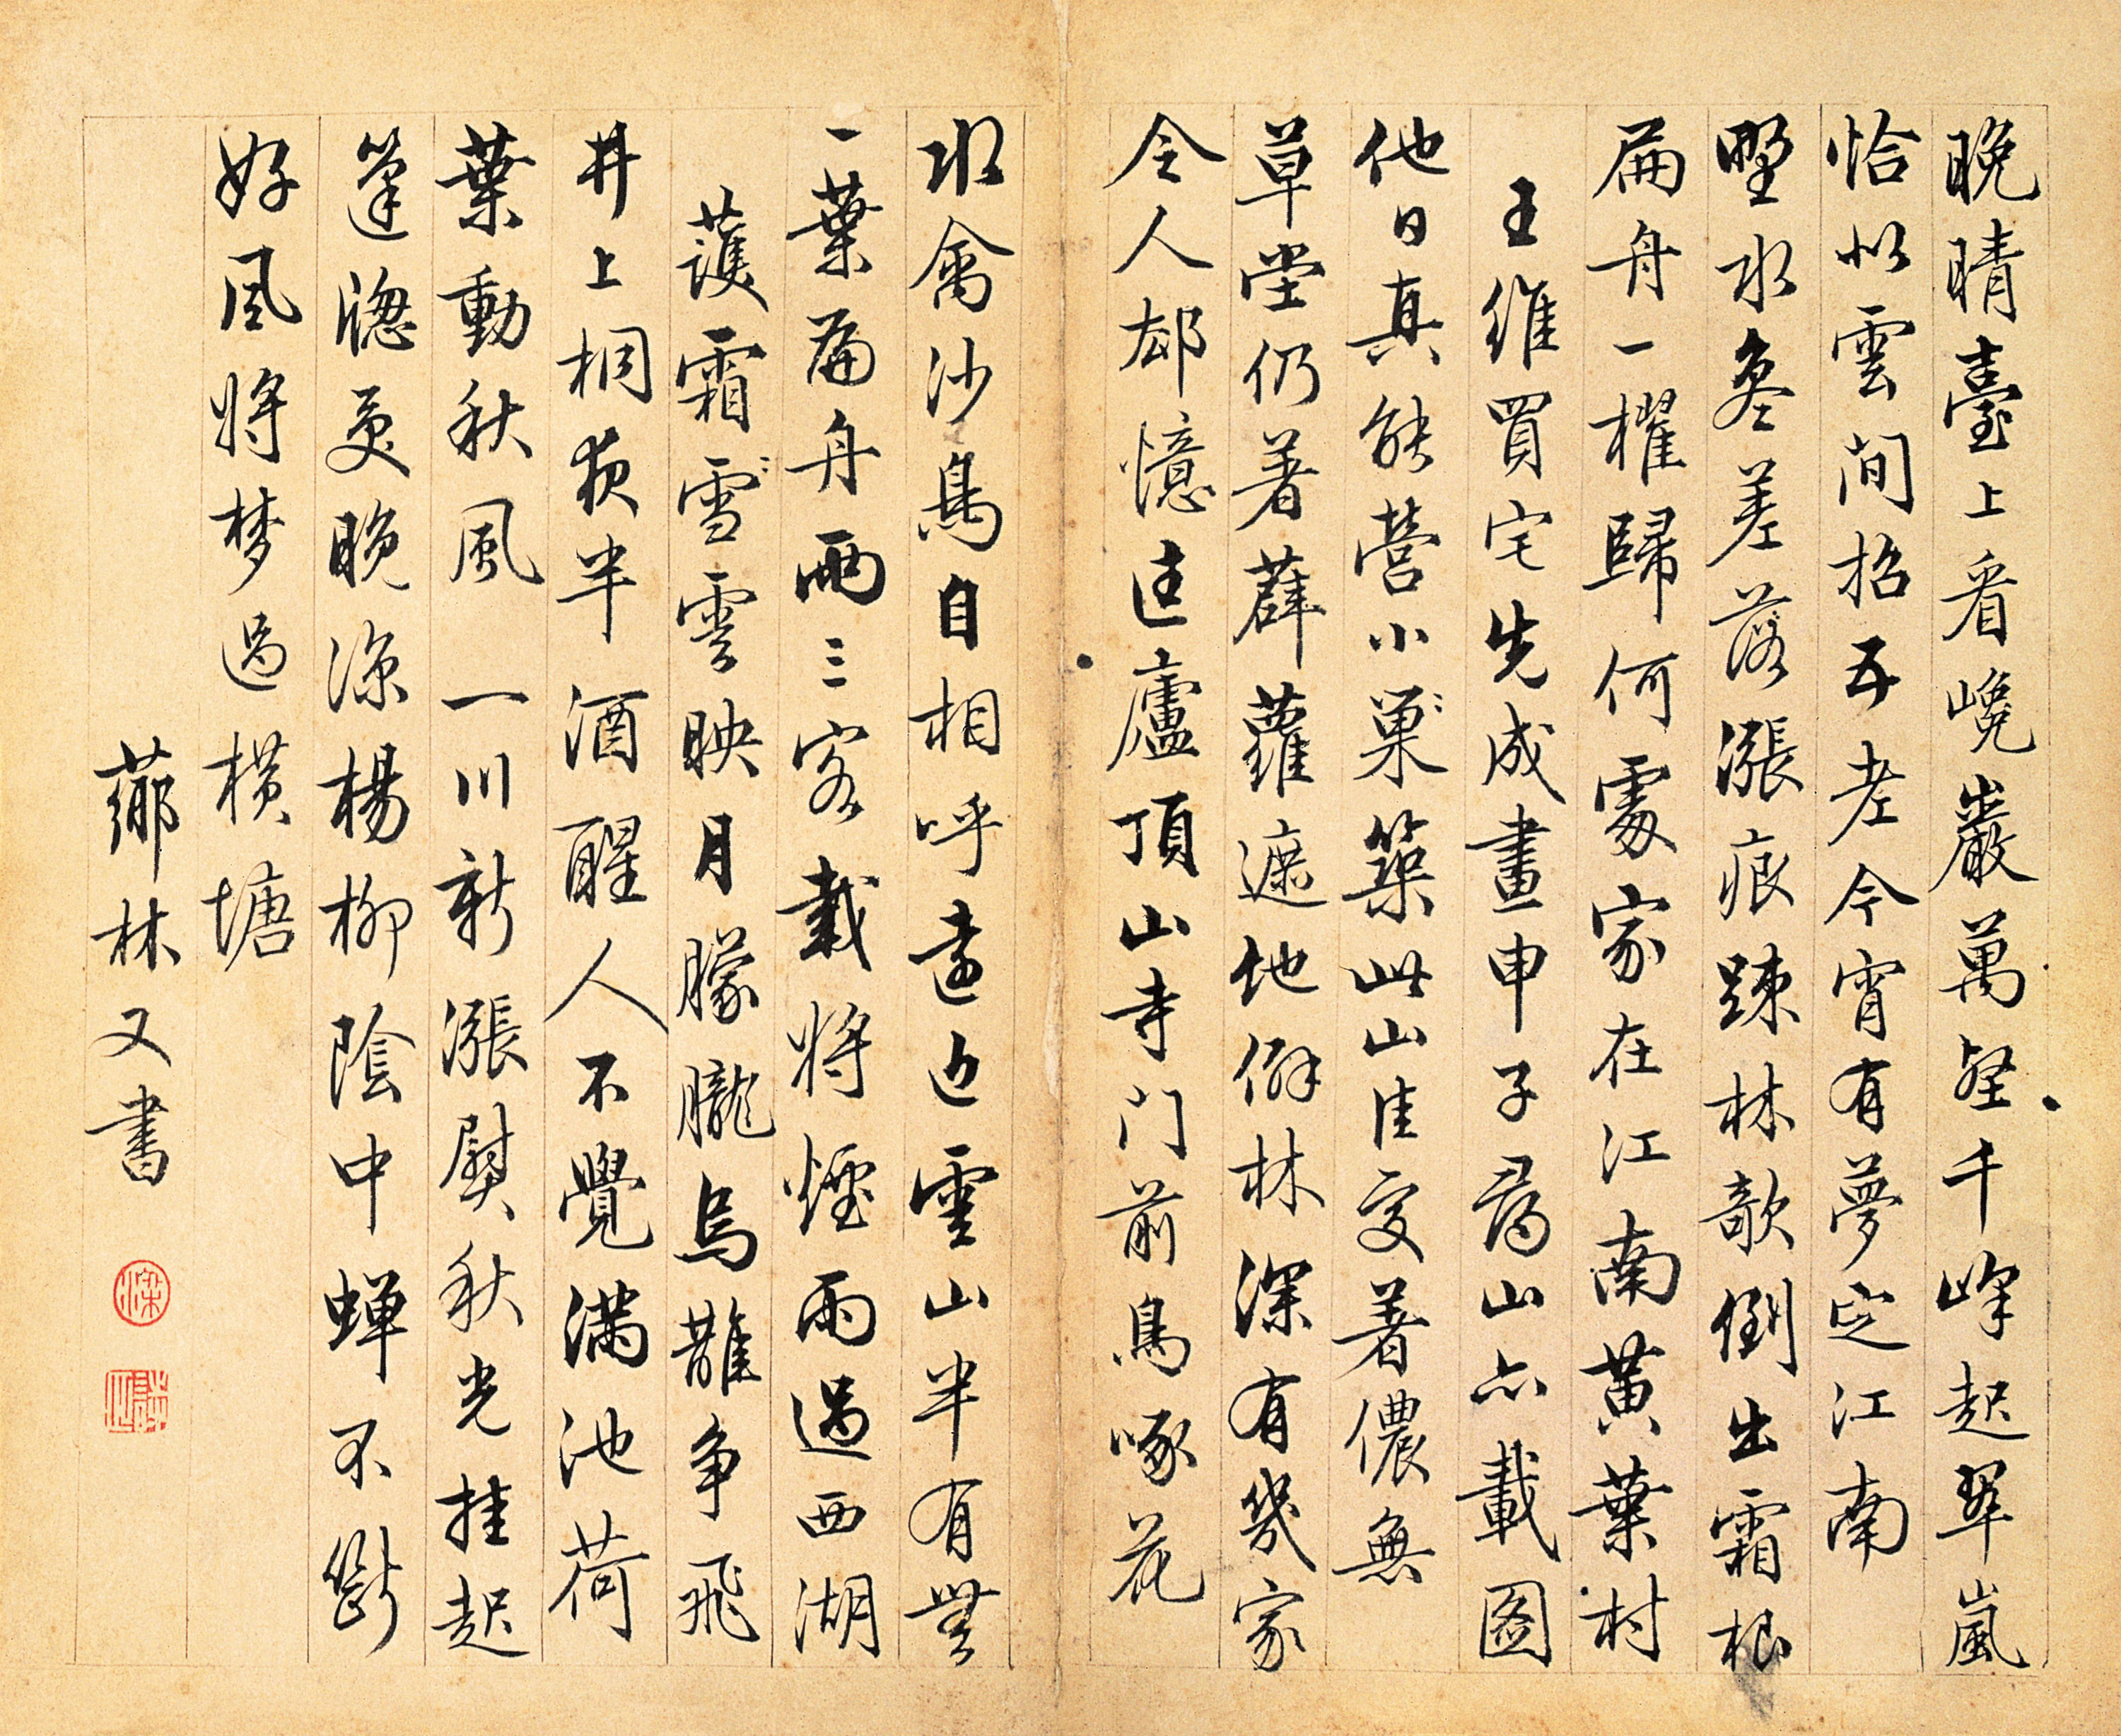 晚晴臺上看巉巖萬壑千峰起翠嵐
恰似雲間招五老今宵有夢定江南
野水參差落漲痕疎林欹倒出霜根
扁舟一櫂歸何處家在江南黃葉村
王維買宅先成畫申子為山亦載圖
他日真能營小巢築此山佳處著儂無
草堂仍著薜蘿遮地僻林深有幾家
令人却憶匡廬頂山寺门前鳥啄花
水禽沙鳥自相呼遠近雲山半有無
一葉扁舟兩三客載將煙雨過西湖
護霜雪雲映月朦朧烏鵲争飛
井上桐夜半酒醒人不覺滿池荷
葉動秋風一川新漲熨秋光挂起
篷牎受晚涼楊柳陰中蟬不斷
好風將梦過橫塘
薌林又書
梁